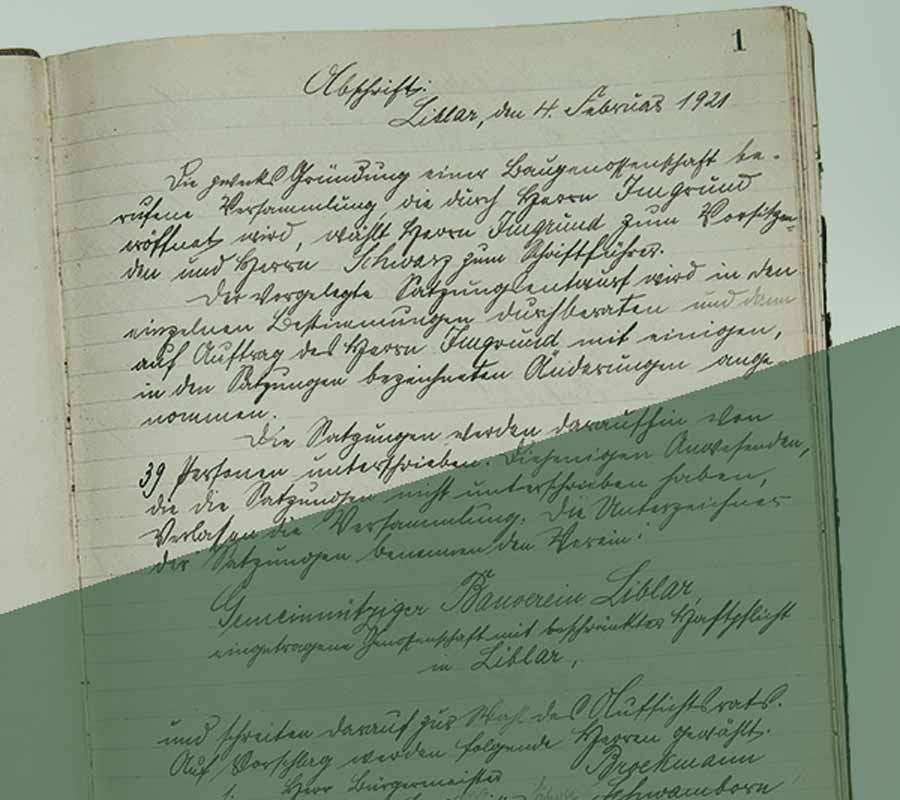 1
Abschrift.
Liblar, den 4. Februar 1921
Die zwecks Gründung einer Baugenossenschaft be-
rufene Versammlung, die durch Herrn Imgrund
eröffnet wird, wählt Herrn Imgrund zum Vorsitzen-
den und Herrn Schwarz zum Schriftführer.
Der vorgelegte Satzungsentwurf wird in den
einzelnen Bestimmungen durchberaten und dann
auf Auftrag des Herrn Imgrund mit einigen,
in den Satzungen bezeichneten Änderungen ange-
nommen.
Die Satzungen werden daraufhin von
39 Personen unterschrieben. Diejenigen Anwesenden,
die die Satzungen nicht unterschrieben haben,
verlassen die Versammlung. Die Unterzeichner
der Satzungen benennen den Verein:
Gemeinnütziger Bauverein Liblar,
eingetragene Genossenschaft mit beschränkter Haftpflicht
in Liblar,
und schreiten darauf zur Wahl des Aufsichtsrats.
Auf Vorschlag werden folgende Herren gewählt.
1. Herr Bürgermeister Brockmann
Schwamborn